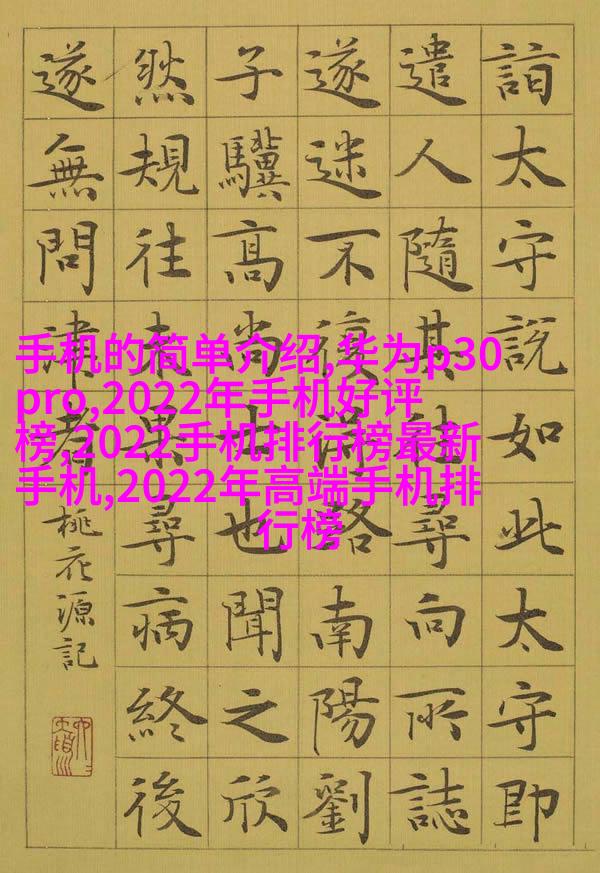 詣太守說如此太守即
遣人隨其往尋向所誌
遂迷不復得路南陽劉
子驥高尚士也聞之欣
然規往未果尋病終後
遂無問津者
桃花源記
手机的简单介绍,华为p30
pro,2022年手机好评
榜,2022手机排行榜最新
手机,2022年高端手机排
行榜